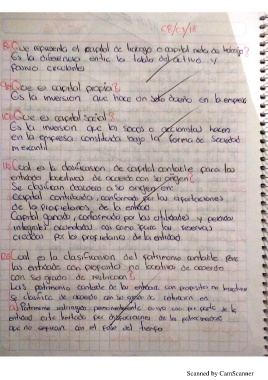 08/03/18
8) Que representa el capital de trabajo o capital neto de trabajo?
Es la diferencia entre la tabla del activo y
pasivo circulantes
9) Que es capital propio?
Es la inversión que hace un solo dueño en la empresa
10) Que es capital social?
Es la inversión que los socios o accionistas hacen
en la empresa constituida bajo la forma de sociedad
mercantil
11) Cual es la clasificación de capital contable para las
entidades lucrativas de acuerdo con su origen?
Se clasifican de acuerdo a su origen en:
Capital contribuido, conformado por las aportaciones
de los propietarios de la entidad
Capital ganado, conformado por las utilidades y perdidas
integrales acumuladas así como por las reservas
creadas por los propietarios de la entidad.
12) Cual es la clasificación del patrimonio contable para
las entidades con propositos no lucrativos de acuerdo
con su grado de restriccion?
Las patrimonio contable de las entidades con propositos no lucrativos
se clasifica de acuerdo con su grado de restriccion en:
a) Patrimonio restringido permanentemente cuyo uso por parte de la
entidad esta limitado por disposiciones de los patrocinadores
que no expiran con el paso del tiempo
Scanned by CamScanner